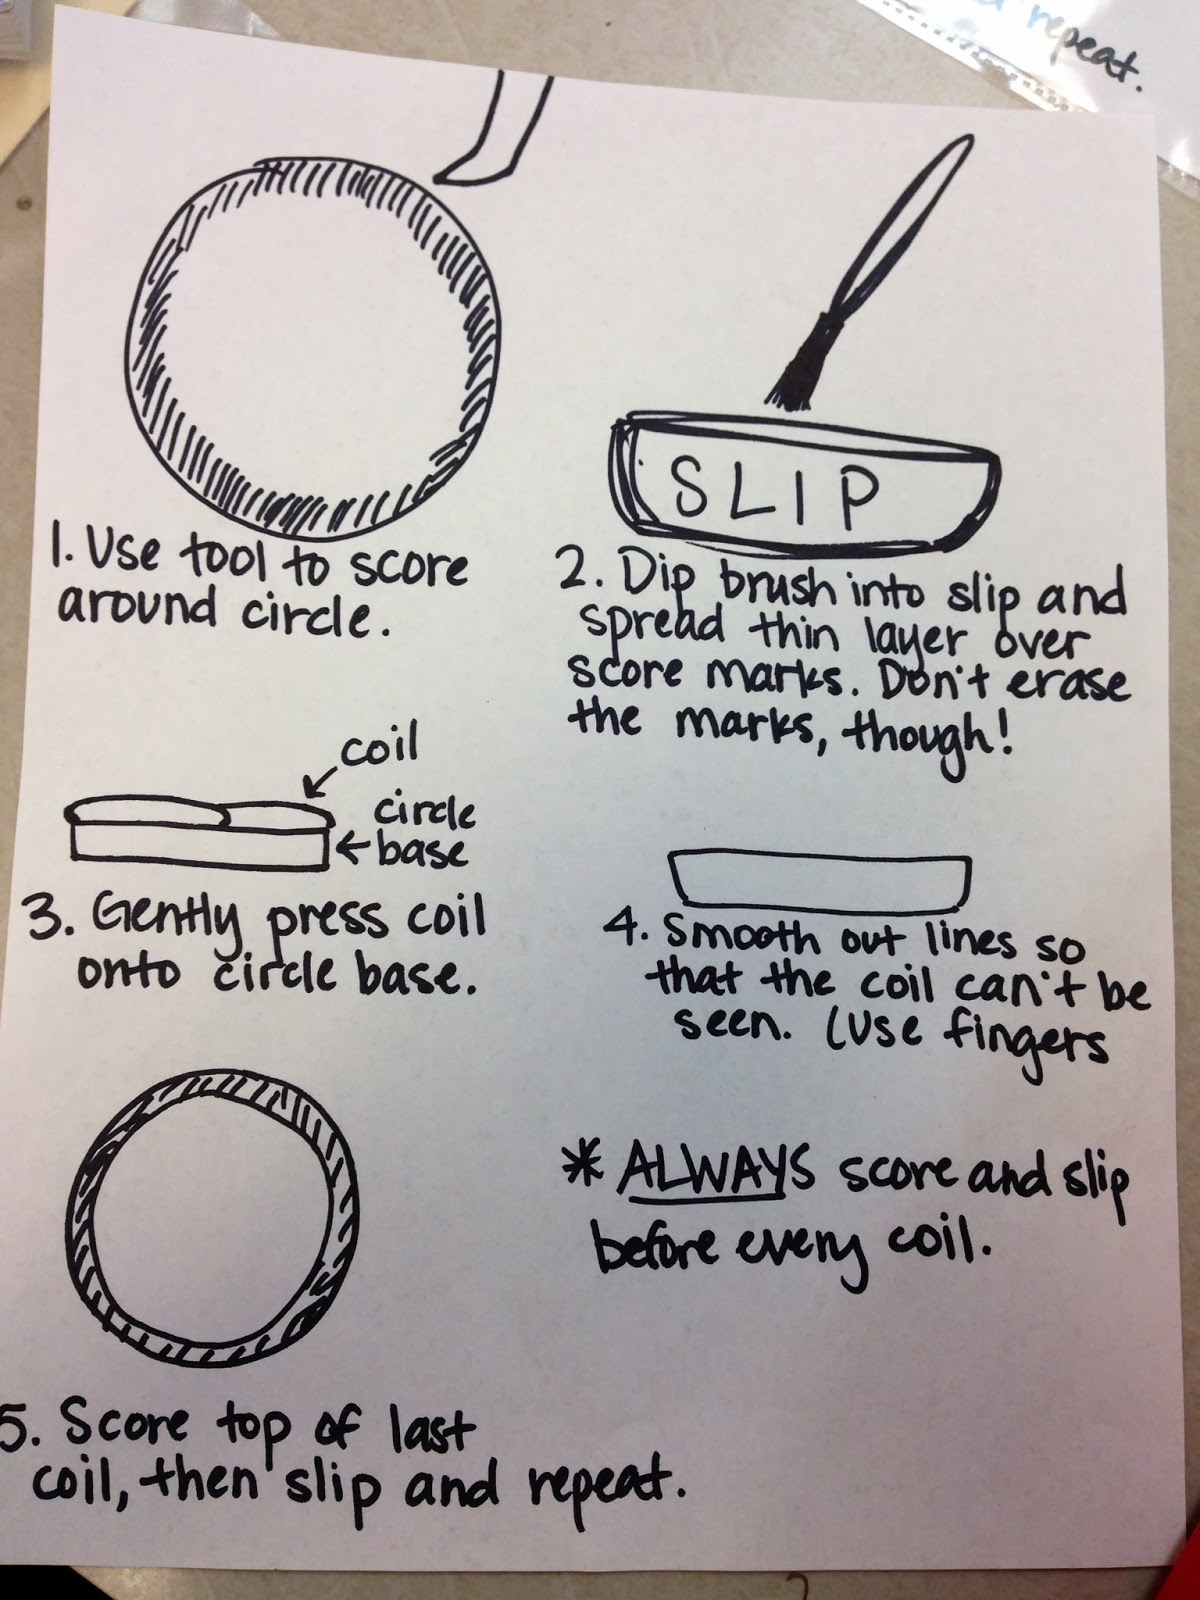 repeat.
SLIP
1. Use tool to score
around circle.
2. Dip brush into slip and
spread thin layer over
score marks. Don't erase
the marks, though!
coil
circle
base
3. Gently press coil
onto circle base.
4. Smooth out lines so
that the coil can't be
seen. (Use fingers
* ALWAYS score and slip
before every coil.
5. Score top of last
coil, then slip and repeat.